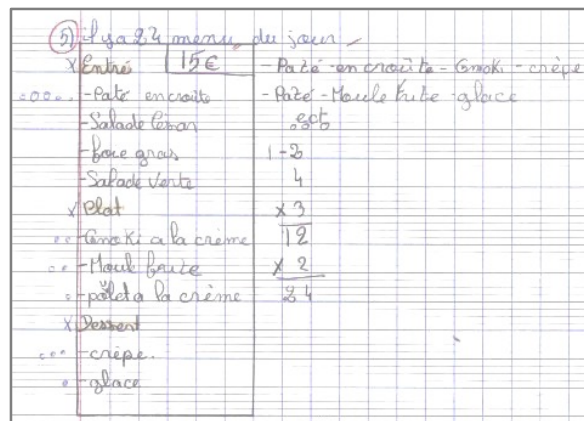 5) il y a 24 menu du jour
x Entré 15€
- Paté en croûte
- Salade Céman
- foie gras
- Salade Verte
x Plat
- Gnoki a la crème
- Moule frite
- pôlet a la crème
x Dessert
- crèpe.
- glace
- Paté en croûte - Gnoki - crèpe
- Paté - Moule frite - glace
ect
1-2
4
x 3
12
x 2
24